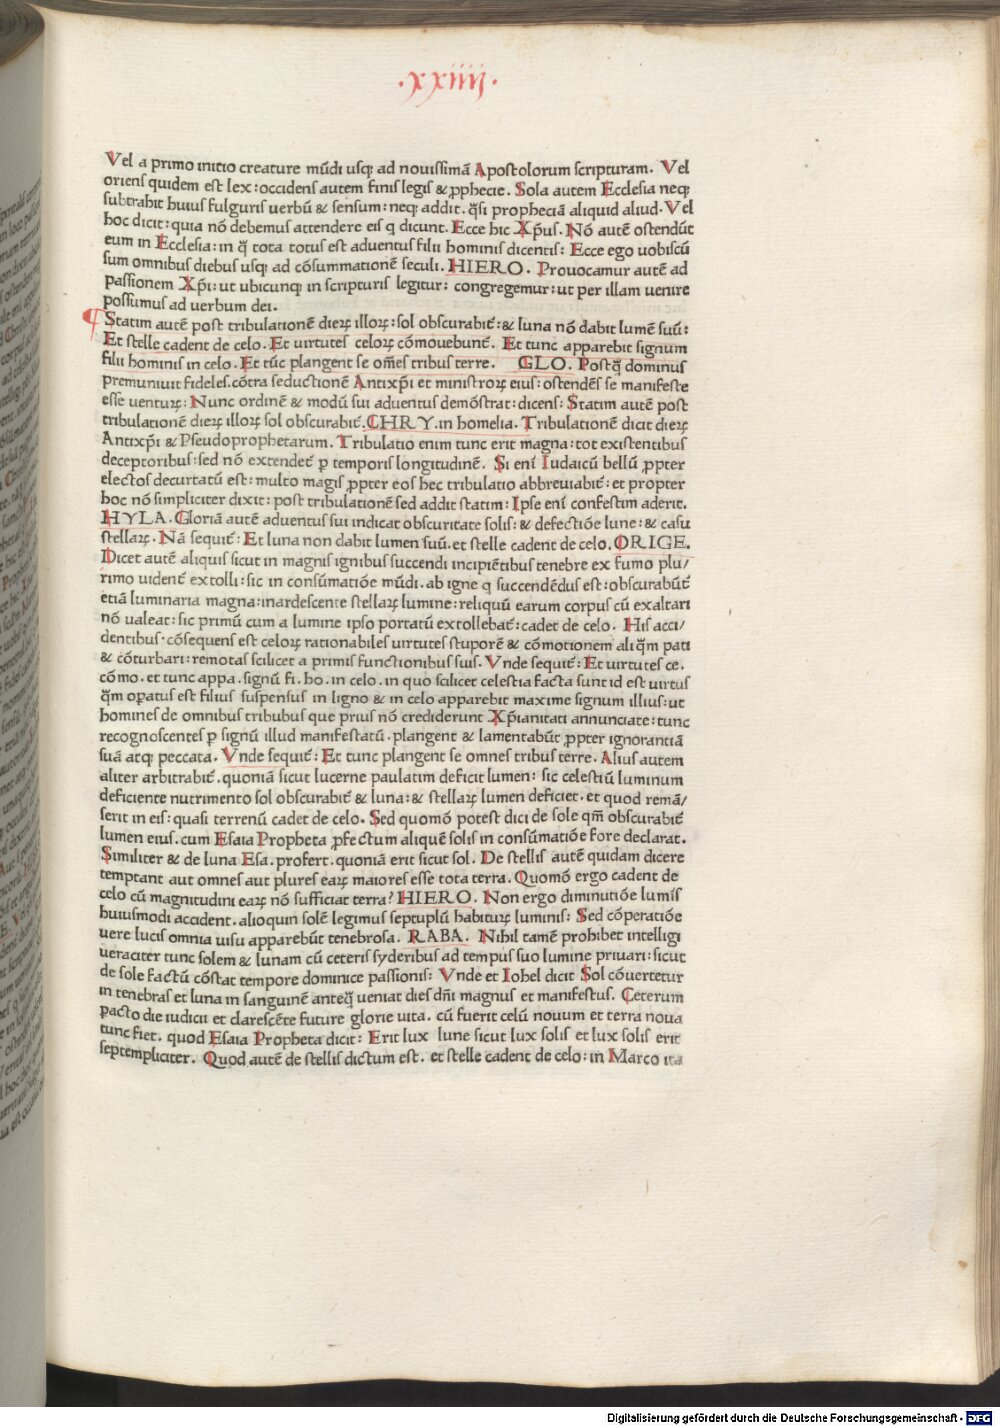 ·xxiiij·
Vel a primo initio creature mūdi usqꝫ ad nouissimā Apostolorum scripturam. Vel
oriens quidem est lex: occidens autem finis legis & ꝓphecie. Sola autem Ecclesia neqꝫ
subtrahit huius fulguris uerbū & sensum: neqꝫ addit. q̄si propheciā aliquid aliud. Vel
hoc dicit: quia nō debemus attendere eis q dicunt. Ecce hic Xp̄us. Nō autē ostendūt
eum in Ecclesia: in q̄ tota totus est aduentus filii hominis dicentis: Ecce ego uobiscū
sum omnibus diebus usqꝫ ad cōsummationē seculi. HIERO. Prouocamur autē ad
passionem Xp̄i: ut ubicunqꝫ in scripturis legitur: congregemur: ut per illam uenire
possumus ad uerbum dei.
¶ Statim autē post tribulationē dieꝝ illoꝝ: sol obscurabit᷑: & luna nō dabit lumē suū:
Et stelle cadent de celo. Et uirtutes celoꝝ cōmouebunt᷑. Et tunc apparebit signum
filii hominis in celo. Et tūc plangent se om̄es tribus terre. GLO. Postq̄ dominus
premuniuit fideles. cōtra seductionē Antixp̄i et ministroꝝ eius: ostendēs se manifeste
esse uentuꝝ: Nunc ordinē & modū sui aduentus demōstrat: dicens: Statim autē post
tribulationē dieꝝ illoꝝ sol obscurabit᷑. CHRY. in homelia. Tribulationē dicit dieꝝ
Antixp̄i & Pseudoprophetarum. Tribulatio enim tunc erit magna: tot existentibus
deceptoribus: sed nō extendet᷑ ꝑ temporis longitudinē. Si eni᷑ Iudaicū bellū ꝓpter
electos decurtatū est: multo magis ꝓpter eos hec tribulatio abbreuiabit᷑: et propter
hoc nō simpliciter dixit: post tribulationē sed addit statim: Ipse eni᷑ confestim aderit.
HYLA. Gloriā autē aduentus sui indicat obscuritate solis: & defectiōe lune: & casu
stellaꝝ. Nā sequit᷑: Et luna non dabit lumen suū. et stelle cadent de celo. ORIGE.
Dicet autē aliquis sicut in magnis ignibus succendi incipiētibus tenebre ex fumo plu/
rimo uident᷑ extolli: sic in consūmatiōe mūdi. ab igne q succendēdus est: obscurabūt᷑
etiā luminaria magna: inardescente stellaꝝ lumine: reliquū earum corpus cū exaltari
nō ualeat: sic primū cum a lumine ipso portatū extollebat᷑: cadet de celo. His acci/
dentibus· cōsequens est celoꝝ rationabiles uirtutes stuporē & cōmotionem aliq̄m pati
& cōturbari: remotas scilicet a primis functionibus suis. Vnde sequit᷑: Et uirtutes ce.
cōmo. et tunc appa. signū fi. ho. in celo. in quo scilicet celestia facta sunt id est uirtus
q̄m oꝑatus est filius suspensus in ligno & in celo apparebit maxime signum illius: ut
homines de omnibus tribubus que prius nō crediderunt Xp̄ianitati annunciate: tunc
recognoscentes ꝑ signū illud manifestatū. plangent & lamentabūt᷑ ꝓpter ignorantiā
suā atqꝫ peccata. Vnde sequit᷑: Et tunc plangent se omnes tribus terre. Alius autem
aliter arbitrabit᷑. quoniā sicut lucerne paulatim deficit lumen: sic celestiū luminum
deficiente nutrimento sol obscurabit᷑ & luna: & stellaꝝ lumen deficiet. et quod remā/
serit in eis: quasi terrenū cadet de celo. Sed quomō potest dici de sole qm̄ obscurabit᷑
lumen eius. cum Esaia Propheta ꝓfectum aliquē solis in consūmatiōe fore declarat.
Similiter & de luna Esa. profert. quoniā erit sicut sol. De stellis autē quidam dicere
temptant aut omnes aut plures eaꝝ maiores esse tota terra. Quomō ergo cadent de
celo cū magnitudini eaꝝ nō sufficiat terra? HIERO. Non ergo diminutiōe lumīs
huiusmodi accident. alioquin solē legimus septuplū habituꝝ luminis: Sed cōperatiōe
uere lucis omnia uisu apparebūt tenebrosa. RABA. Nihil tamē prohibet intelligi
ueraciter tunc solem & lunam cū ceteris syderibus ad tempus suo lumine priuari: sicut
de sole factū cōstat tempore dominice passionis: Vnde et Iohel dicit Sol cōuertetur
in tenebras et luna in sanguinē anteq̄ ueniat dies dn̄i magnus et manifestus. Ceterum
ꝑacto die iudicii et clarescēte future glorie uita. cū fuerit celū nouum et terra noua
tunc fiet. quod Esaia Propheta dicit: Erit lux lune sicut lux solis et lux solis erit
septempliciter. Quod autē de stellis dictum est. et stelle cadent de celo: in Marco ita
Digitalisierung gefördert durch die Deutsche Forschungsgemeinschaft - DFG